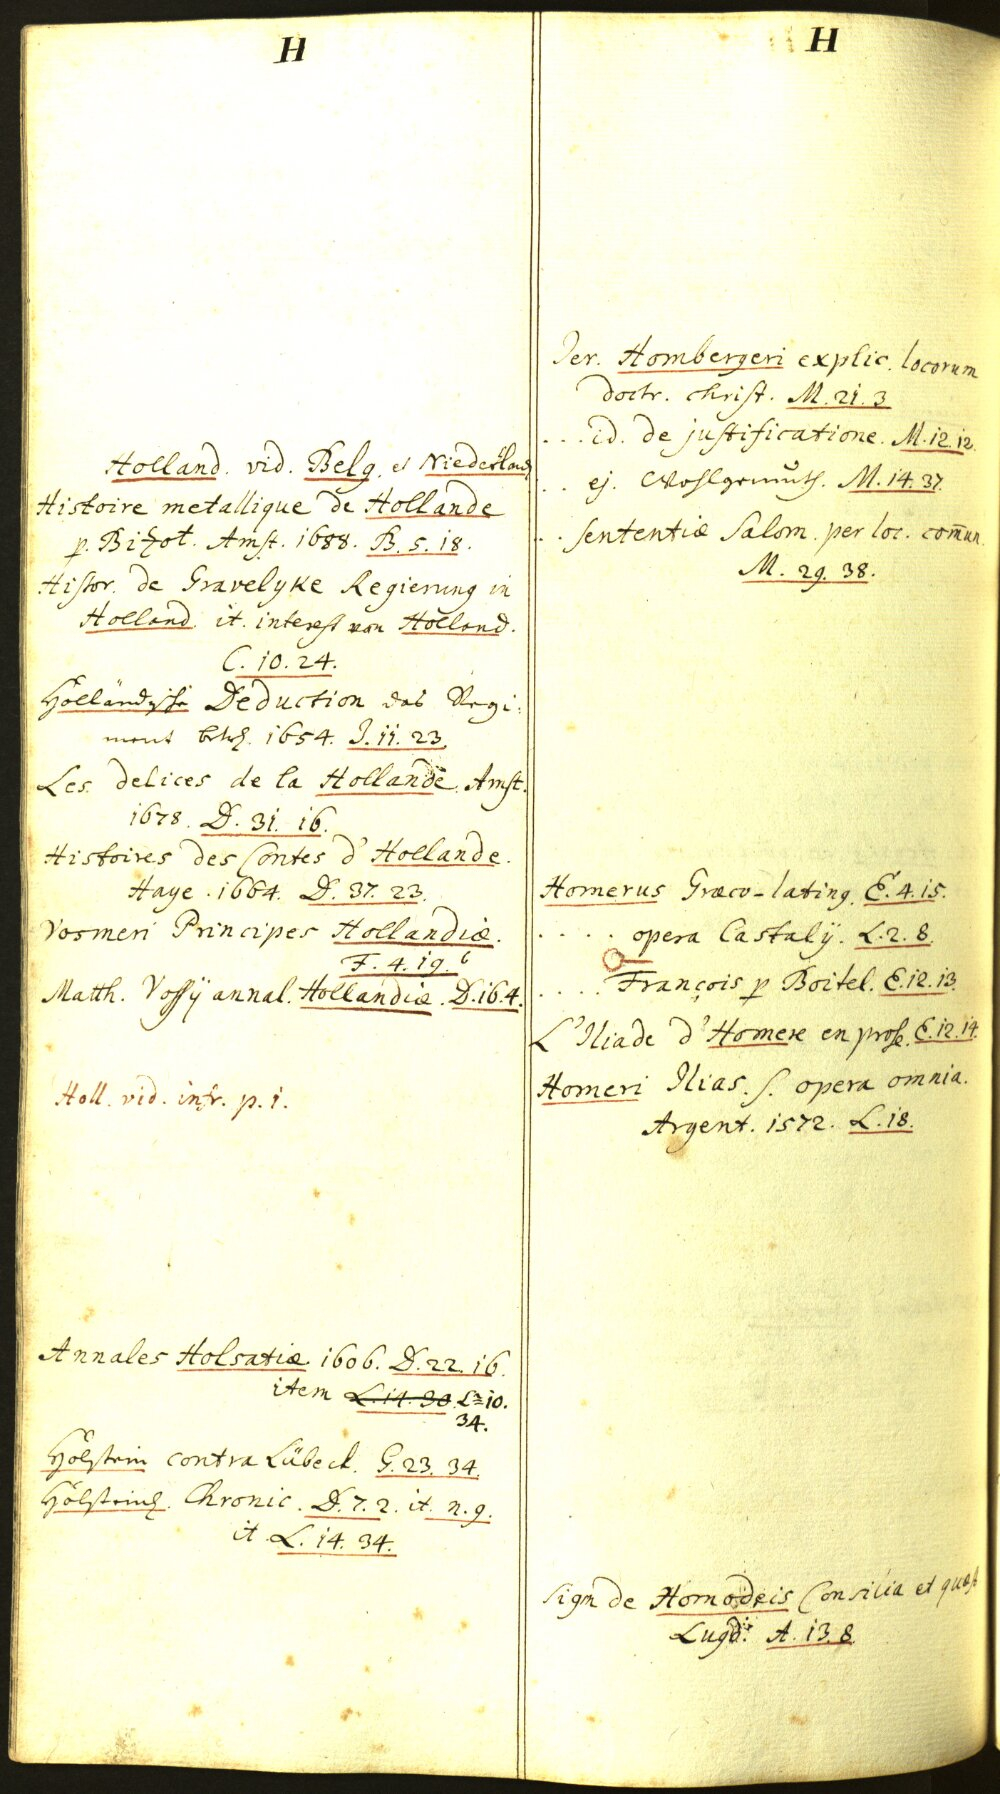 H
Holland. vid. Belg. et Niederland
Histoire metallique de Hollande
p. Bizot. Amst. 1688. B. 5. 18.
Histor. de Gravelyke Regierung in
Holland. it. interest von Holland.
C. 10. 24.
Holländische Deduction das Regi-
ment betr. 1654. J. 11. 23.
Les delices de la Hollande. Amst.
1678. D. 31. 16.
Histoires des Contes d'Hollande.
Haye. 1664. D. 37. 23.
Vosmeri Principes Hollandiæ.
F. 4. 19. 6
Matth. Vossij annal. Hollandiæ. D. 16. 4.
Holl. vid. infr. p. 1.
Annales Holsatiæ. 1606. D. 22. 16.
item L. 14. 30. L. 10.
34.
Holstein contra Lübeck. G. 23. 34.
Holsteinh. Chronic. D. 7. 2. it. n. 9.
it L. 14. 34.
H
Jer. Hombergeri explic. locorum
doctr. christ. M. 21. 3
... id. de justificatione. M. 12. 12.
.. ej. Wohlgemuth. M. 14. 37.
.. sententiæ Salom. per loc. com̄un.
M. 29. 38.
Homerus Græco-latinq. E. 4. 15.
.... opera Castalij. L. 2. 8.
.... François p Boitel. E. 12. 13.
L'Iliade d'Homere en prose. E. 12. 14.
Homeri Ilias. s. opera omnia.
Argent. 1572. L. 18.
Sign de Homodeis Consilia et quæst
Lugd. A. 13. 8.